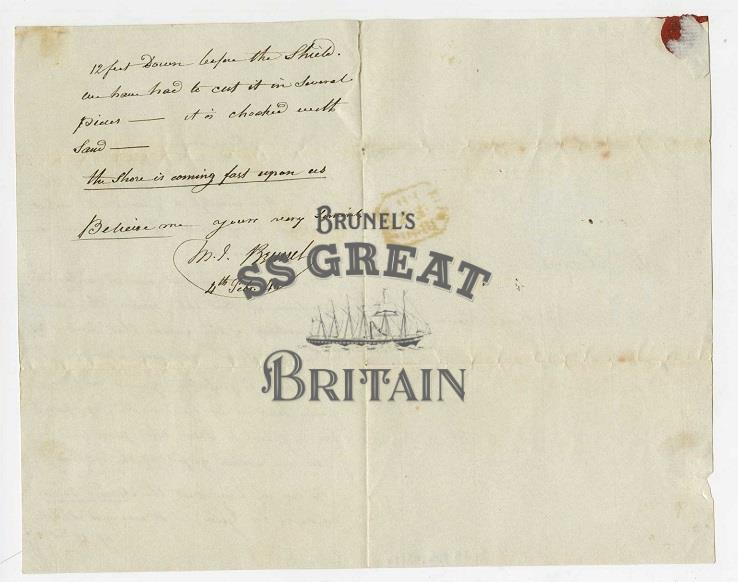 12 feet Down before the Shield.
we have had to cut it in several
pieces — it is choaked with
Sand —
the Shore is coming fast upon us
Believe me yours very
M. I. Brunel
4th Feb
BRUNEL'S
SS GREAT
BRITAIN